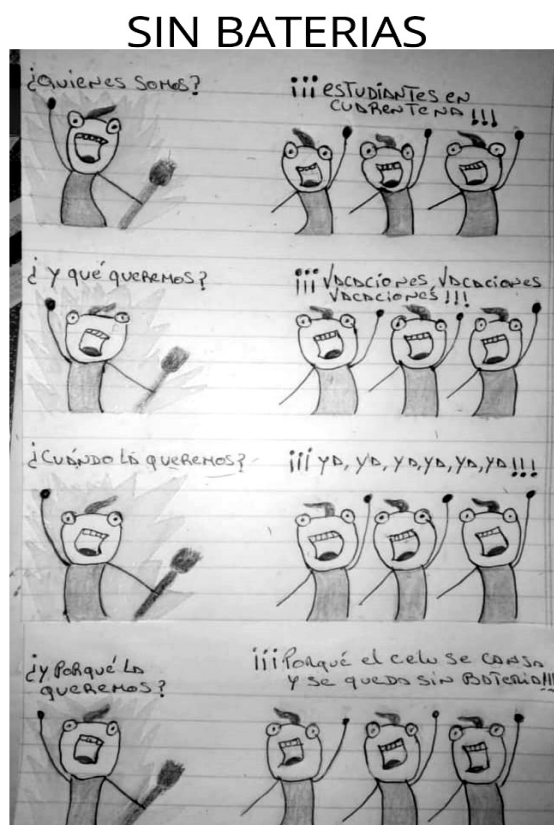 SIN BATERIAS
¿QUIENES SOMOS?
¡¡¡ESTUDIANTES EN
CUARENTENA!!!
¿Y QUÉ QUEREMOS?
¡¡¡VACACIONES, VACACIONES
VACACIONES!!!
¿CUÁNDO LA QUEREMOS?
¡¡¡YA, YA, YA, YA, YA, YA!!!
¿Y PORQUÉ LA
QUEREMOS?
¡¡¡PORQUÉ el celu se CANSA
Y SE QUEDA SIN BATERIA!!!